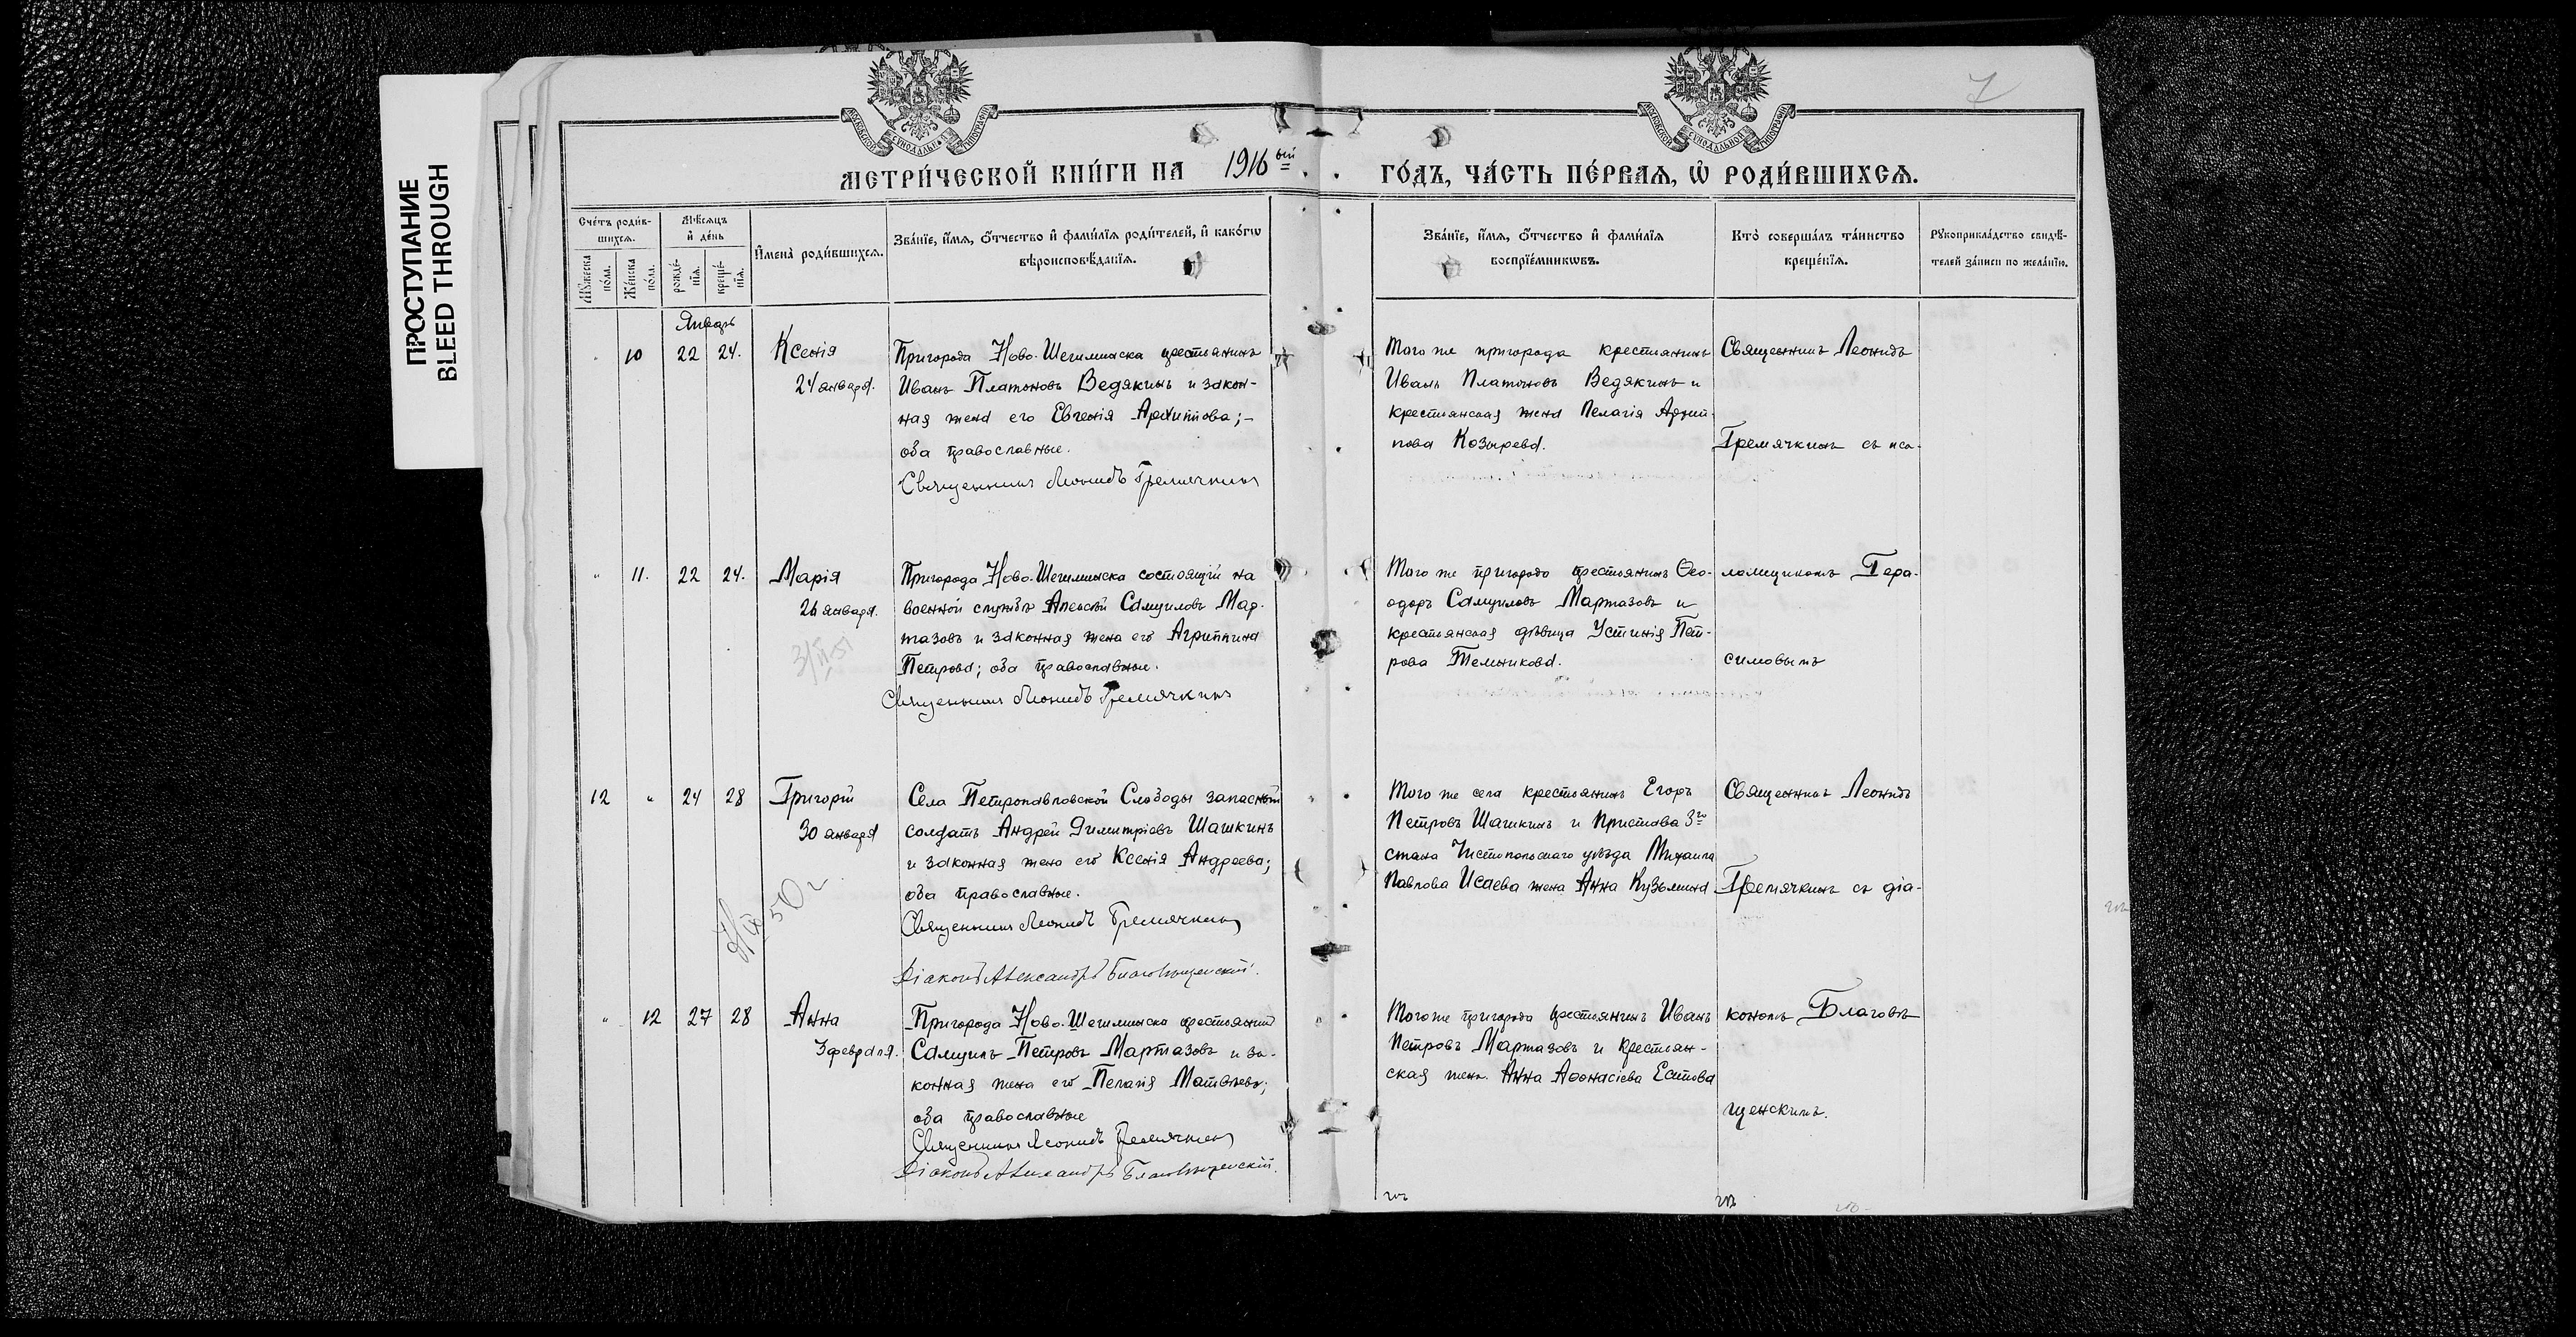 ПРОСТУПАНИЕ
BLEED THROUGH
7
МОСКОВСКОЙ СУНОДАЛЬНОЙ ТИПОГРАФІИ
МЕТРИ́ЧЕСКОЙ КНИ́ГИ НА 1916 ый ГО́ДЪ, ЧА́СТЬ ПЕ́РВАЯ, Ѽ РОДИ́ВШИХСЯ.
Сче́тъ роди́в-
шихся.
Мꙋ́жеска по́ла.
Же́нска по́ла.
Мѣ́сяцъ
и҆ де́нь
рожде́-
нїя.
креще́-
нїя.
И҆мена̀ роди́вшихся.
Зва́нїе, и҆́мя, ѻ҆́тчество и҆ фами́лїя роди́телей, и҆ како́гѡ
вѣроисповѣ́данїя.
Зва́нїе, и҆́мя, ѻ҆́тчество и҆ фами́лїя
воспрїе́мникѡвъ.
Кто̀ соверша́лъ та́инство
креще́нїя.
Рꙋкоприкла́дство свидѣ́-
телей за́писи по жела́нїю.
Январь
" 10 22 24. Ксенія
24 января.
Пригорода Ново-Шешминска крестьянинъ
Иванъ Платоновъ Ведякинъ и закон-
ная жена его Евгенія Архиппова;-
оба православные.
Священникъ Леонидъ Гремячкинъ
Того же пригорода крестьянинъ
Иванъ Платоновъ Ведякинъ и
крестьянская жена Пелагія Архип-
пова Козырева.
Священникъ Леонидъ
Гремячкинъ съ пса-
" 11. 22 24. Марія
26 января.
Пригорода Ново-Шешминска состоящій на
военной службѣ Алексѣй Самуиловъ Мар-
тазовъ и законная жена его Агриппина
Петрова; оба православные.
Священникъ Леонидъ Гремячкинъ
Того же пригорода крестьянинъ Ѳео-
одоръ Самуиловъ Мартазовъ и
крестьянская дѣвица Устинія Пет-
рова Темникова.
ломщикомъ Гера-
симовымъ
12 " 24 28 Григорій
30 января
Села Петропавловской Слободы запасной
солдатъ Андрей Димитріевъ Шашкинъ
и законная жена его Ксенія Андреева;
оба православные.
Священникъ Леонидъ Гремячкинъ
Діаконъ Александръ Благовѣщенскій.
Того же села крестьянинъ Егоръ
Петровъ Шашкинъ и Пристава 3го
стана Чистопольскаго уѣзда Михаила
Павлова Исаева жена Анна Кузьмина
Священникъ Леонидъ
Гремячкинъ съ діа-
" 12 27 28 Анна
3 февраля.
Пригорода Ново-Шешминска крестьянинъ
Самуилъ Петровъ Мартазовъ и за-
конная жена его Пелагія Матвѣева;
оба православные
Священникъ Леонидъ Гремячкинъ
Діаконъ Александръ Благовѣщенскій.
Того же пригорода крестьянинъ Иванъ
Петровъ Мартазовъ и крестьян-
ская жена Анна Аѳонасіева Есипова
кономъ Благовѣ
щенскимъ.